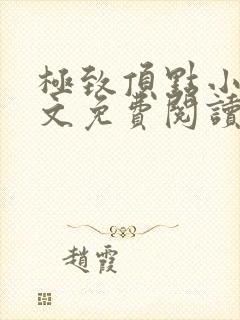 極致頂點小
文免費閱讀
趙霞